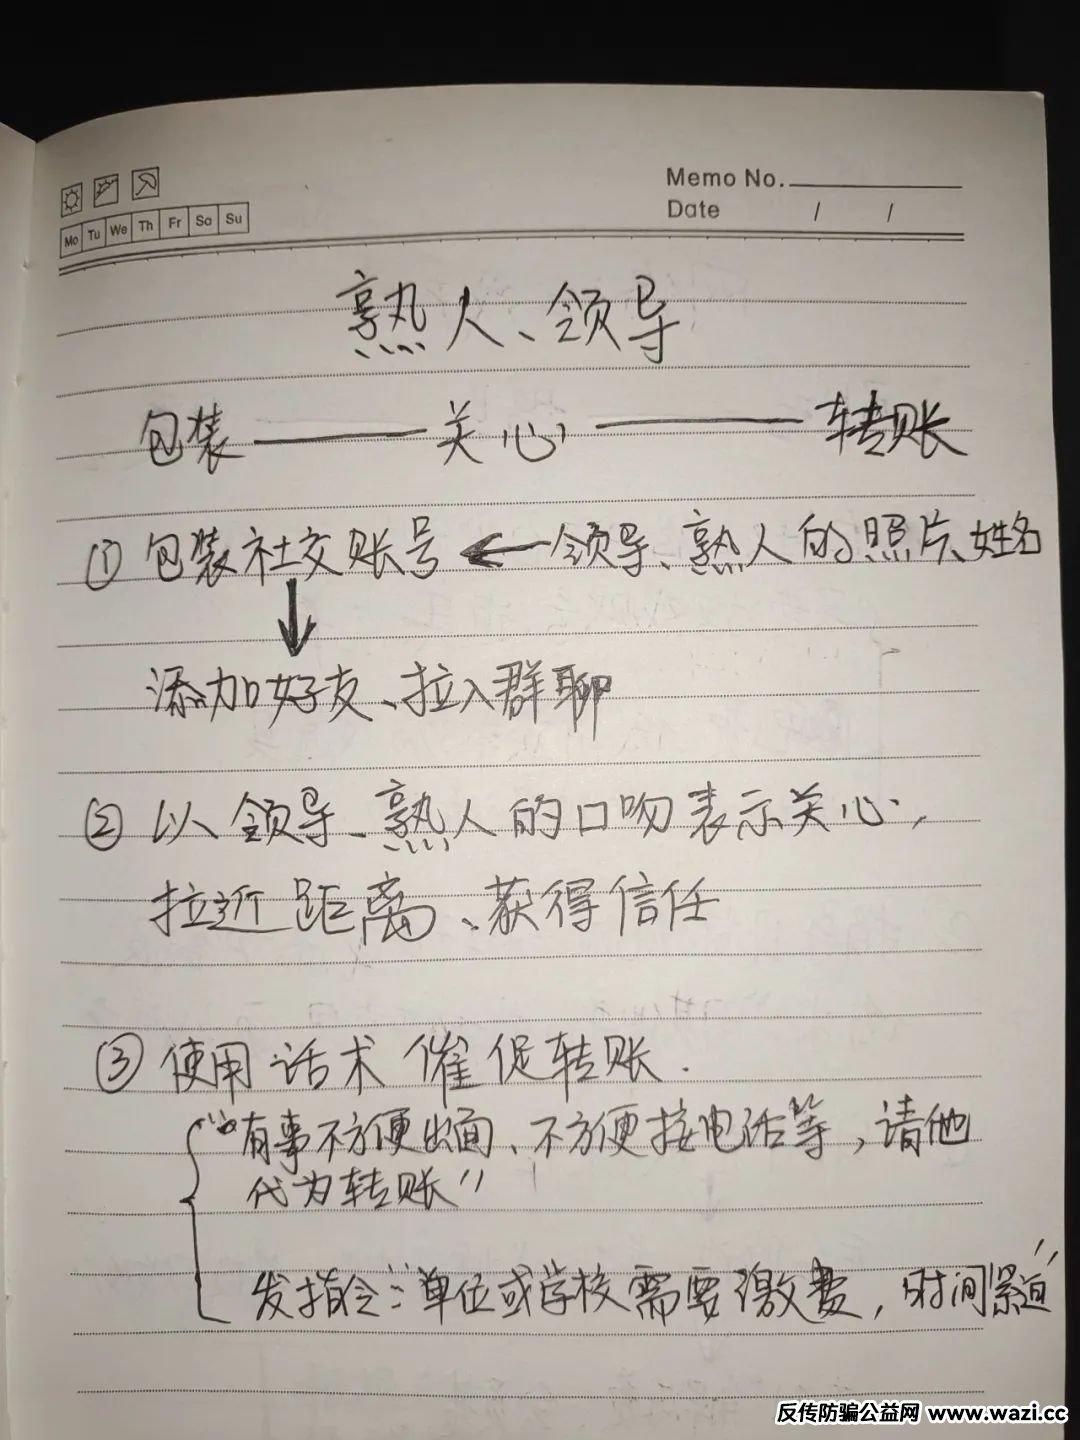 Memo No.
Mo Tu We Th Fr Sa Su
Date / /
熟人、领导
包装——关心——转账
① 包装社交账号←领导、熟人的照片、姓名
↓
添加好友、拉入群聊
② 以领导、熟人的口吻表示关心,
拉近距离、获得信任
③ 使用话术催促转账.
“有事不方便出面、不方便接电话等,请他
代为转账”
发指令:“单位或学校需要缴费,时间紧迫”
反传防骗公益网 www.wazi.cc